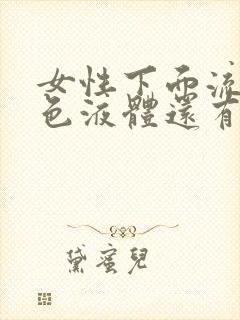 女性下面流
色液體還有
黛蜜兒